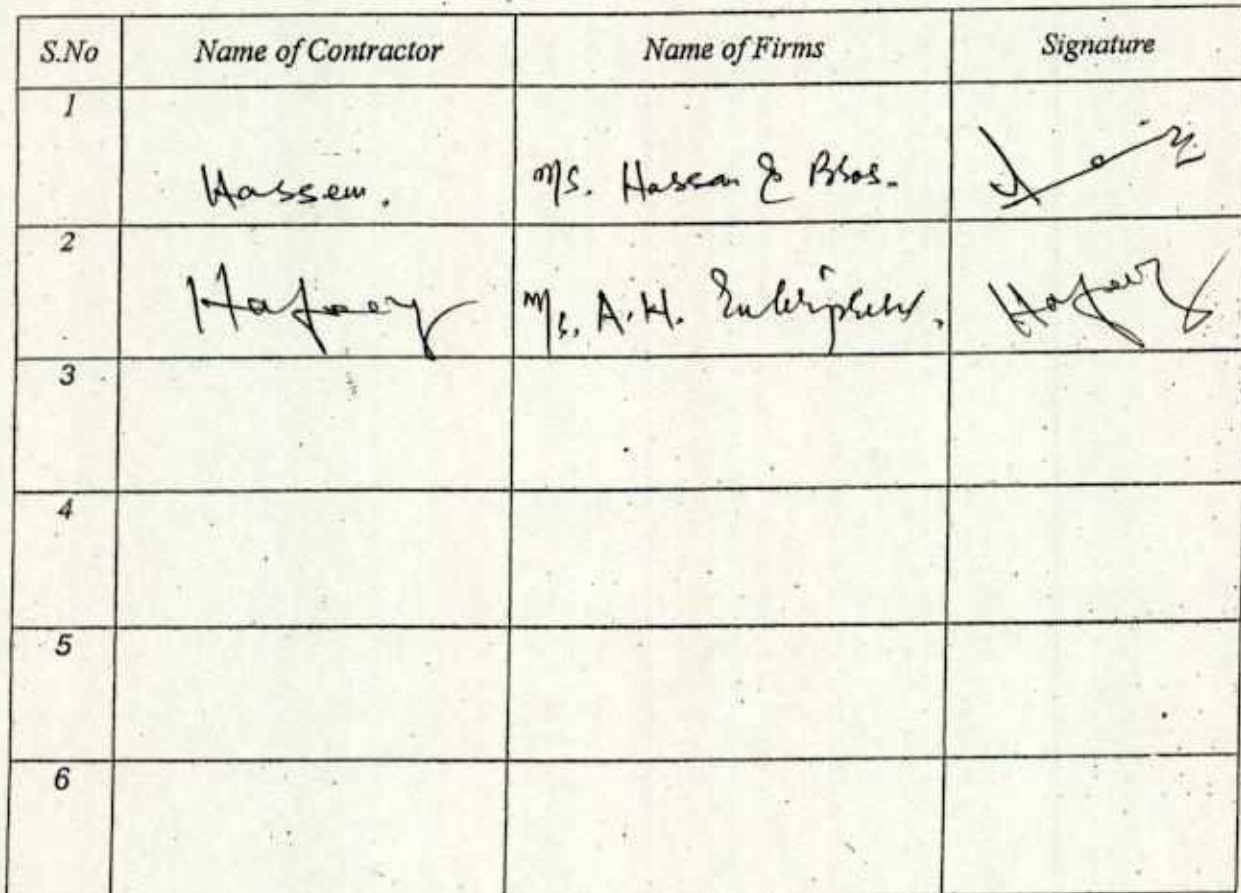 S.No Name of Contractor Name of Firms Signature
1
Hassem. M/S. Hassan & Bros.
2
M/s. A.H. Enterprises.
3
4
5
6